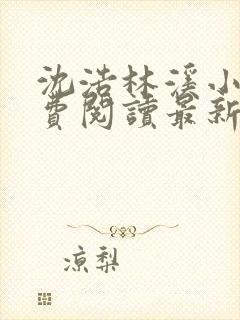 沈浩林溪小
費閱讀最新
凉梨